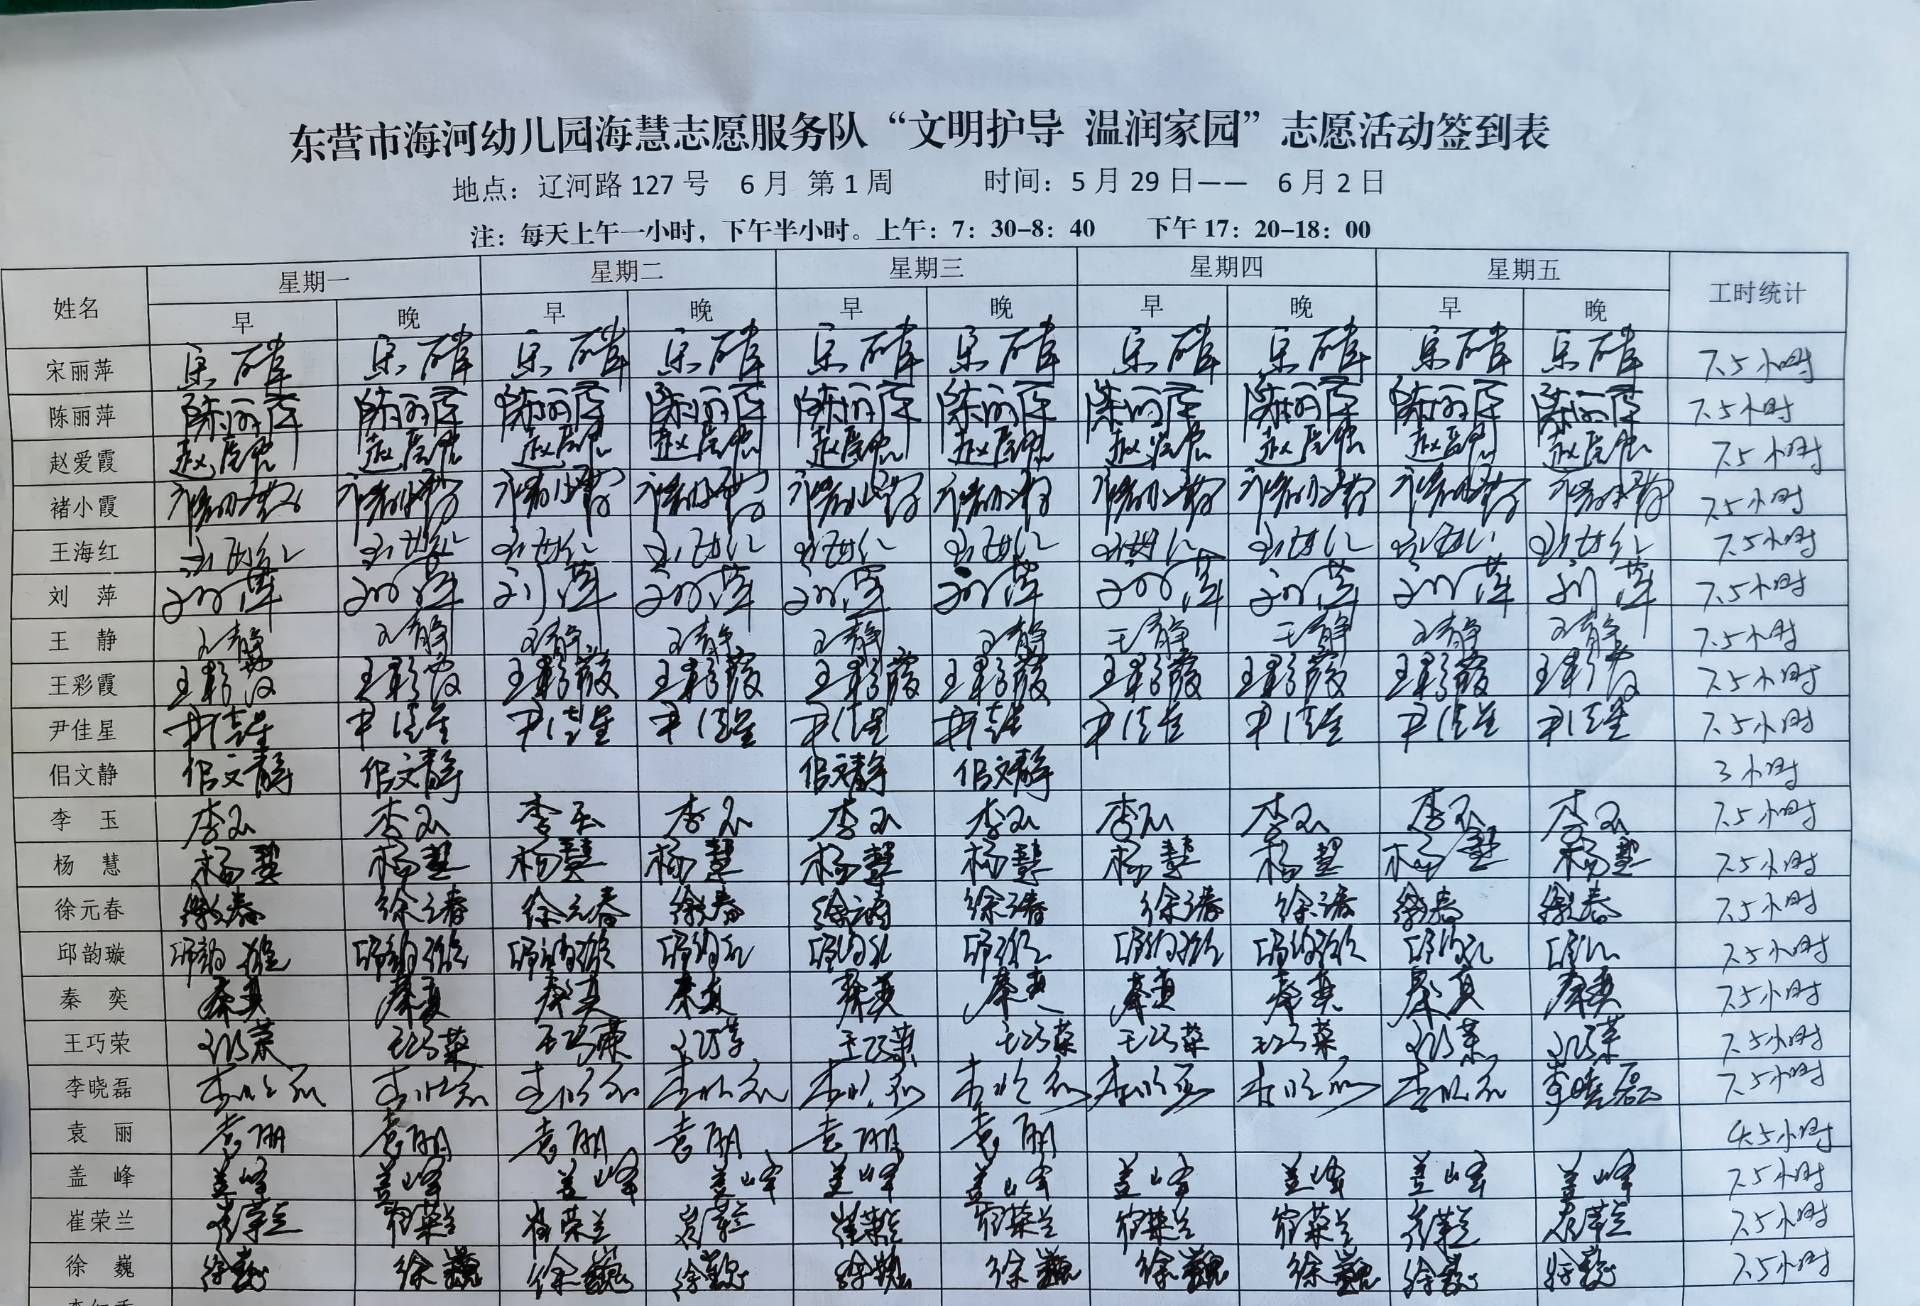 东营市海河幼儿园海慧志愿服务队“文明护导 温润家园”志愿活动签到表
地点：辽河路 127 号 6 月 第 1 周 时间：5 月 29 日—— 6 月 2 日
注：每天上午一小时，下午半小时。上午：7：30-8：40 下午 17：20-18：00
姓名 星期一 星期二 星期三 星期四 星期五 工时统计
早 晚 早 晚 早 晚 早 晚 早 晚
宋丽萍 7.5小时
陈丽萍 陈丽萍 陈丽萍 陈丽萍 陈丽萍 陈丽萍 陈丽萍 陈丽萍 陈丽萍 陈丽萍 陈丽萍 7.5小时
赵爱霞 赵爱霞 赵爱霞 赵爱霞 赵爱霞 赵爱霞 赵爱霞 赵爱霞 赵爱霞 赵爱霞 赵爱霞 7.5小时
褚小霞 褚小霞 褚小霞 褚小霞 褚小霞 褚小霞 褚小霞 褚小霞 褚小霞 褚小霞 褚小霞 7.5小时
王海红 王海红 王海红 王海红 王海红 王海红 王海红 王海红 王海红 王海红 王海红 7.5小时
刘 萍 刘萍 刘萍 刘萍 刘萍 刘萍 刘萍 刘萍 刘萍 刘萍 刘萍 7.5小时
王 静 王静 王静 王静 王静 王静 王静 王静 王静 王静 王静 7.5小时
王彩霞 王彩霞 王彩霞 王彩霞 王彩霞 王彩霞 王彩霞 王彩霞 王彩霞 王彩霞 王彩霞 7.5小时
尹佳星 尹佳星 尹佳星 尹佳星 尹佳星 尹佳星 尹佳星 尹佳星 尹佳星 尹佳星 尹佳星 7.5小时
佀文静 佀文静 佀文静 佀文静 佀文静 3小时
李 玉 李玉 李玉 李玉 李玉 李玉 李玉 李玉 李玉 李玉 李玉 7.5小时
杨 慧 杨慧 杨慧 杨慧 杨慧 杨慧 杨慧 杨慧 杨慧 杨慧 杨慧 7.5小时
徐元春 徐元春 徐元春 徐元春 徐元春 徐元春 徐元春 徐元春 徐元春 徐元春 徐元春 7.5小时
邱韵璇 邱韵璇 邱韵璇 邱韵璇 邱韵璇 邱韵璇 邱韵璇 邱韵璇 邱韵璇 邱韵璇 邱韵璇 7.5小时
秦 奕 秦奕 秦奕 秦奕 秦奕 秦奕 秦奕 秦奕 秦奕 秦奕 秦奕 7.5小时
王巧荣 王巧荣 王巧荣 王巧荣 王巧荣 王巧荣 王巧荣 王巧荣 王巧荣 王巧荣 王巧荣 7.5小时
李晓磊 李晓磊 李晓磊 李晓磊 李晓磊 李晓磊 李晓磊 李晓磊 李晓磊 李晓磊 李晓磊 7.5小时
袁 丽 袁丽 袁丽 袁丽 袁丽 袁丽 袁丽 4.5小时
盖 峰 盖峰 盖峰 盖峰 盖峰 盖峰 盖峰 盖峰 盖峰 盖峰 盖峰 7.5小时
崔荣兰 崔荣兰 崔荣兰 崔荣兰 崔荣兰 崔荣兰 崔荣兰 崔荣兰 崔荣兰 崔荣兰 崔荣兰 7.5小时
徐 巍 徐巍 徐巍 徐巍 徐巍 徐巍 徐巍 徐巍 徐巍 徐巍 徐巍 7.5小时